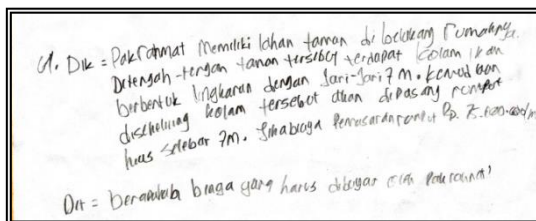 4. Dik = Pak rahmat memiliki lahan taman di belakang rumahnya.
Ditengah-tengah taman tersebut terdapat kolam ikan
berbentuk lingkaran dengan Jari-Jari 7 m. kemudian
disekeliling kolam tersebut akan dipasang rumput
hias selebar 7m. Jika biaya pemasangan rumput Rp.
Dit = berapakah biaya yang harus dibayar oleh Pak rahmat?